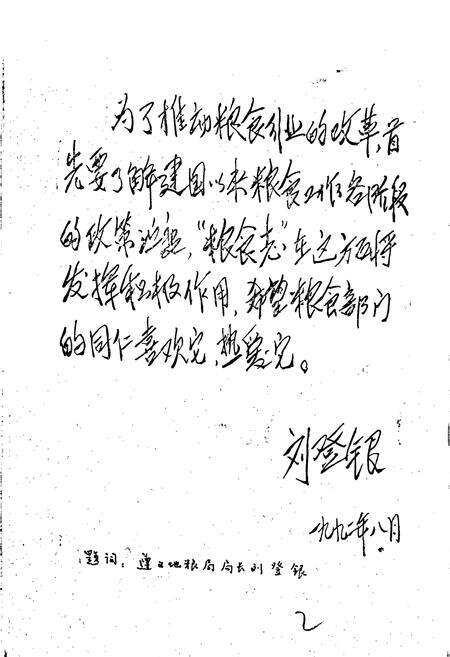 为了推动粮食行业的改革,首
先要了解建国以来粮食工作各阶段
的政策沿革,"粮食志"在这方面将
发挥积极作用,希望粮食部门
的同仁喜欢它,热爱它。
刘登银
一九九二年八月
题词:遵义地粮局局长刘登银
2